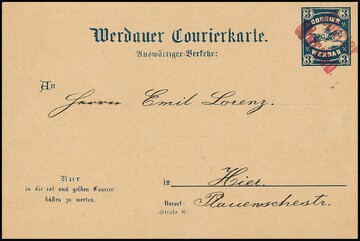 Werdauer Courierkarte.
Auswärtiger-Verkehr:
3 COURIER 3
3 WERDAU 3
An
Herrn Emil Lorenz.
Nur
in die rot und gelben Courier-
kästen zu werfen.
in Hier.
Vorort: Plauenschestr.
(Straße Nr.